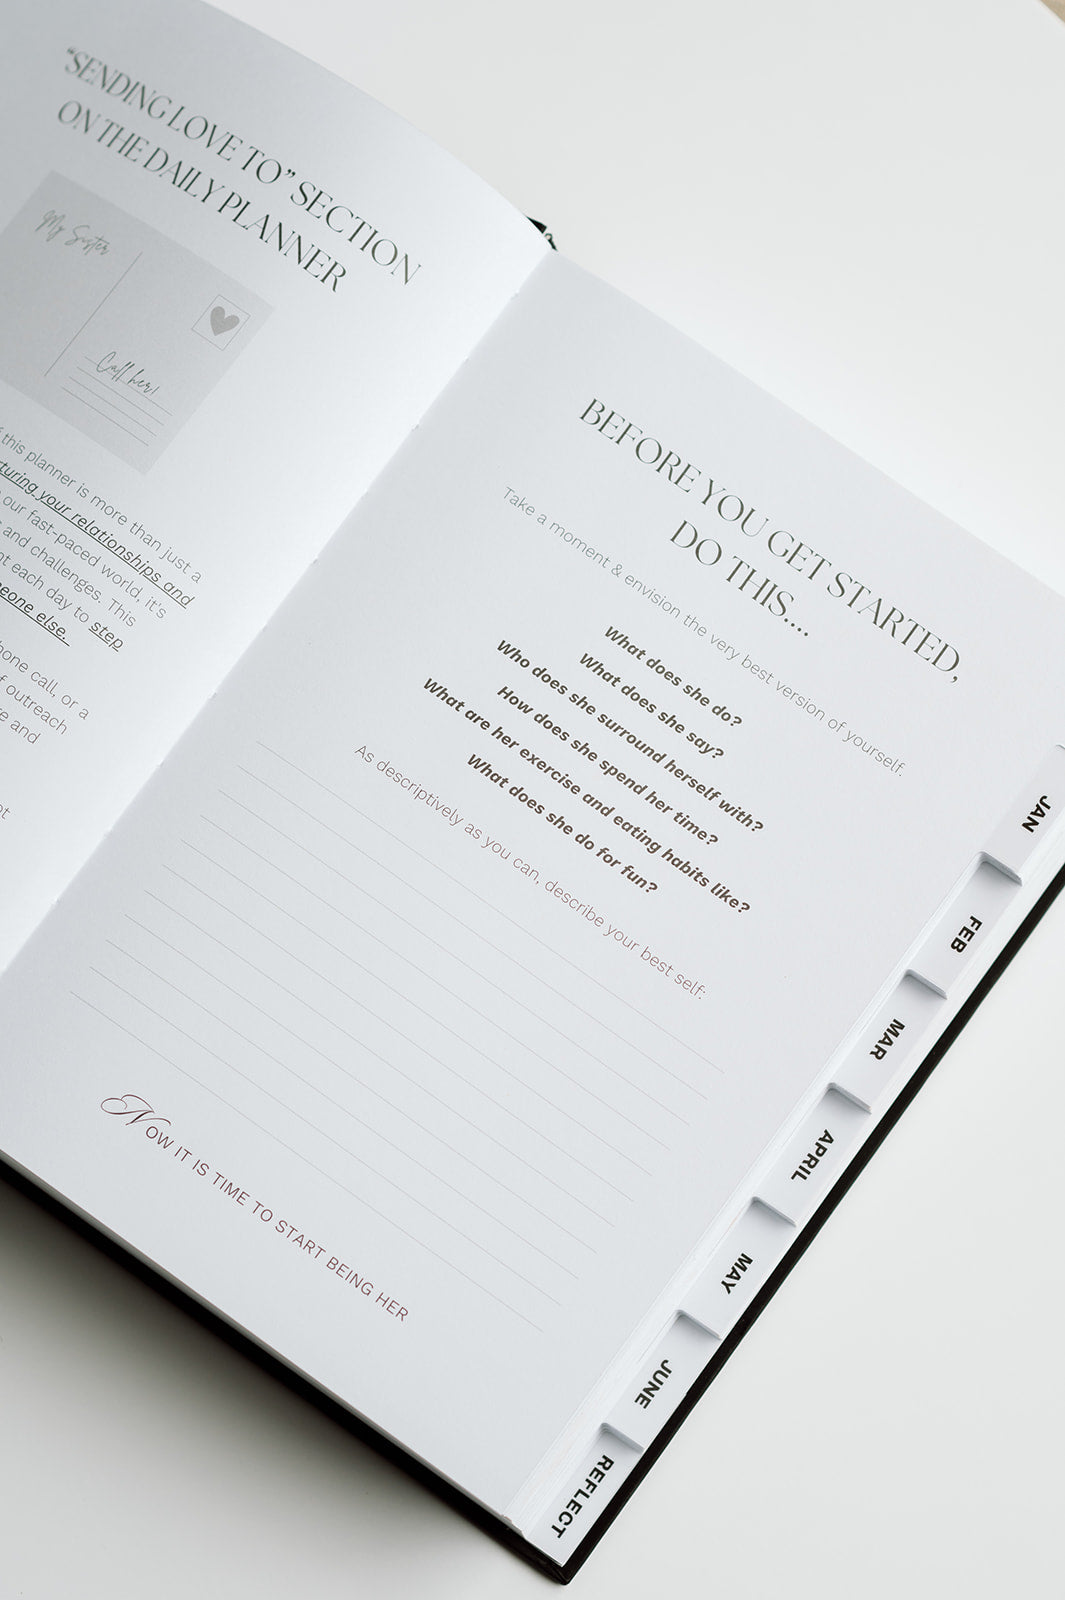 “SENDING LOVE TO” SECTION
ON THE DAILY PLANNER
My Sister
Call her!
this planner is more than just a
turing your relationships and
our fast-paced world, it's
and challenges. This
each day to step
else.
call, or a
outreach
and
BEFORE YOU GET STARTED,
DO THIS....
Take a moment & envision the very best version of yourself.
What does she do?
What does she say?
Who does she surround herself with?
How does she spend her time?
What are her exercise and eating habits like?
What does she do for fun?
As descriptively as you can, describe your best self:
NOW IT IS TIME TO START BEING HER
JAN
FEB
MAR
APRIL
MAY
JUNE
REFLECT